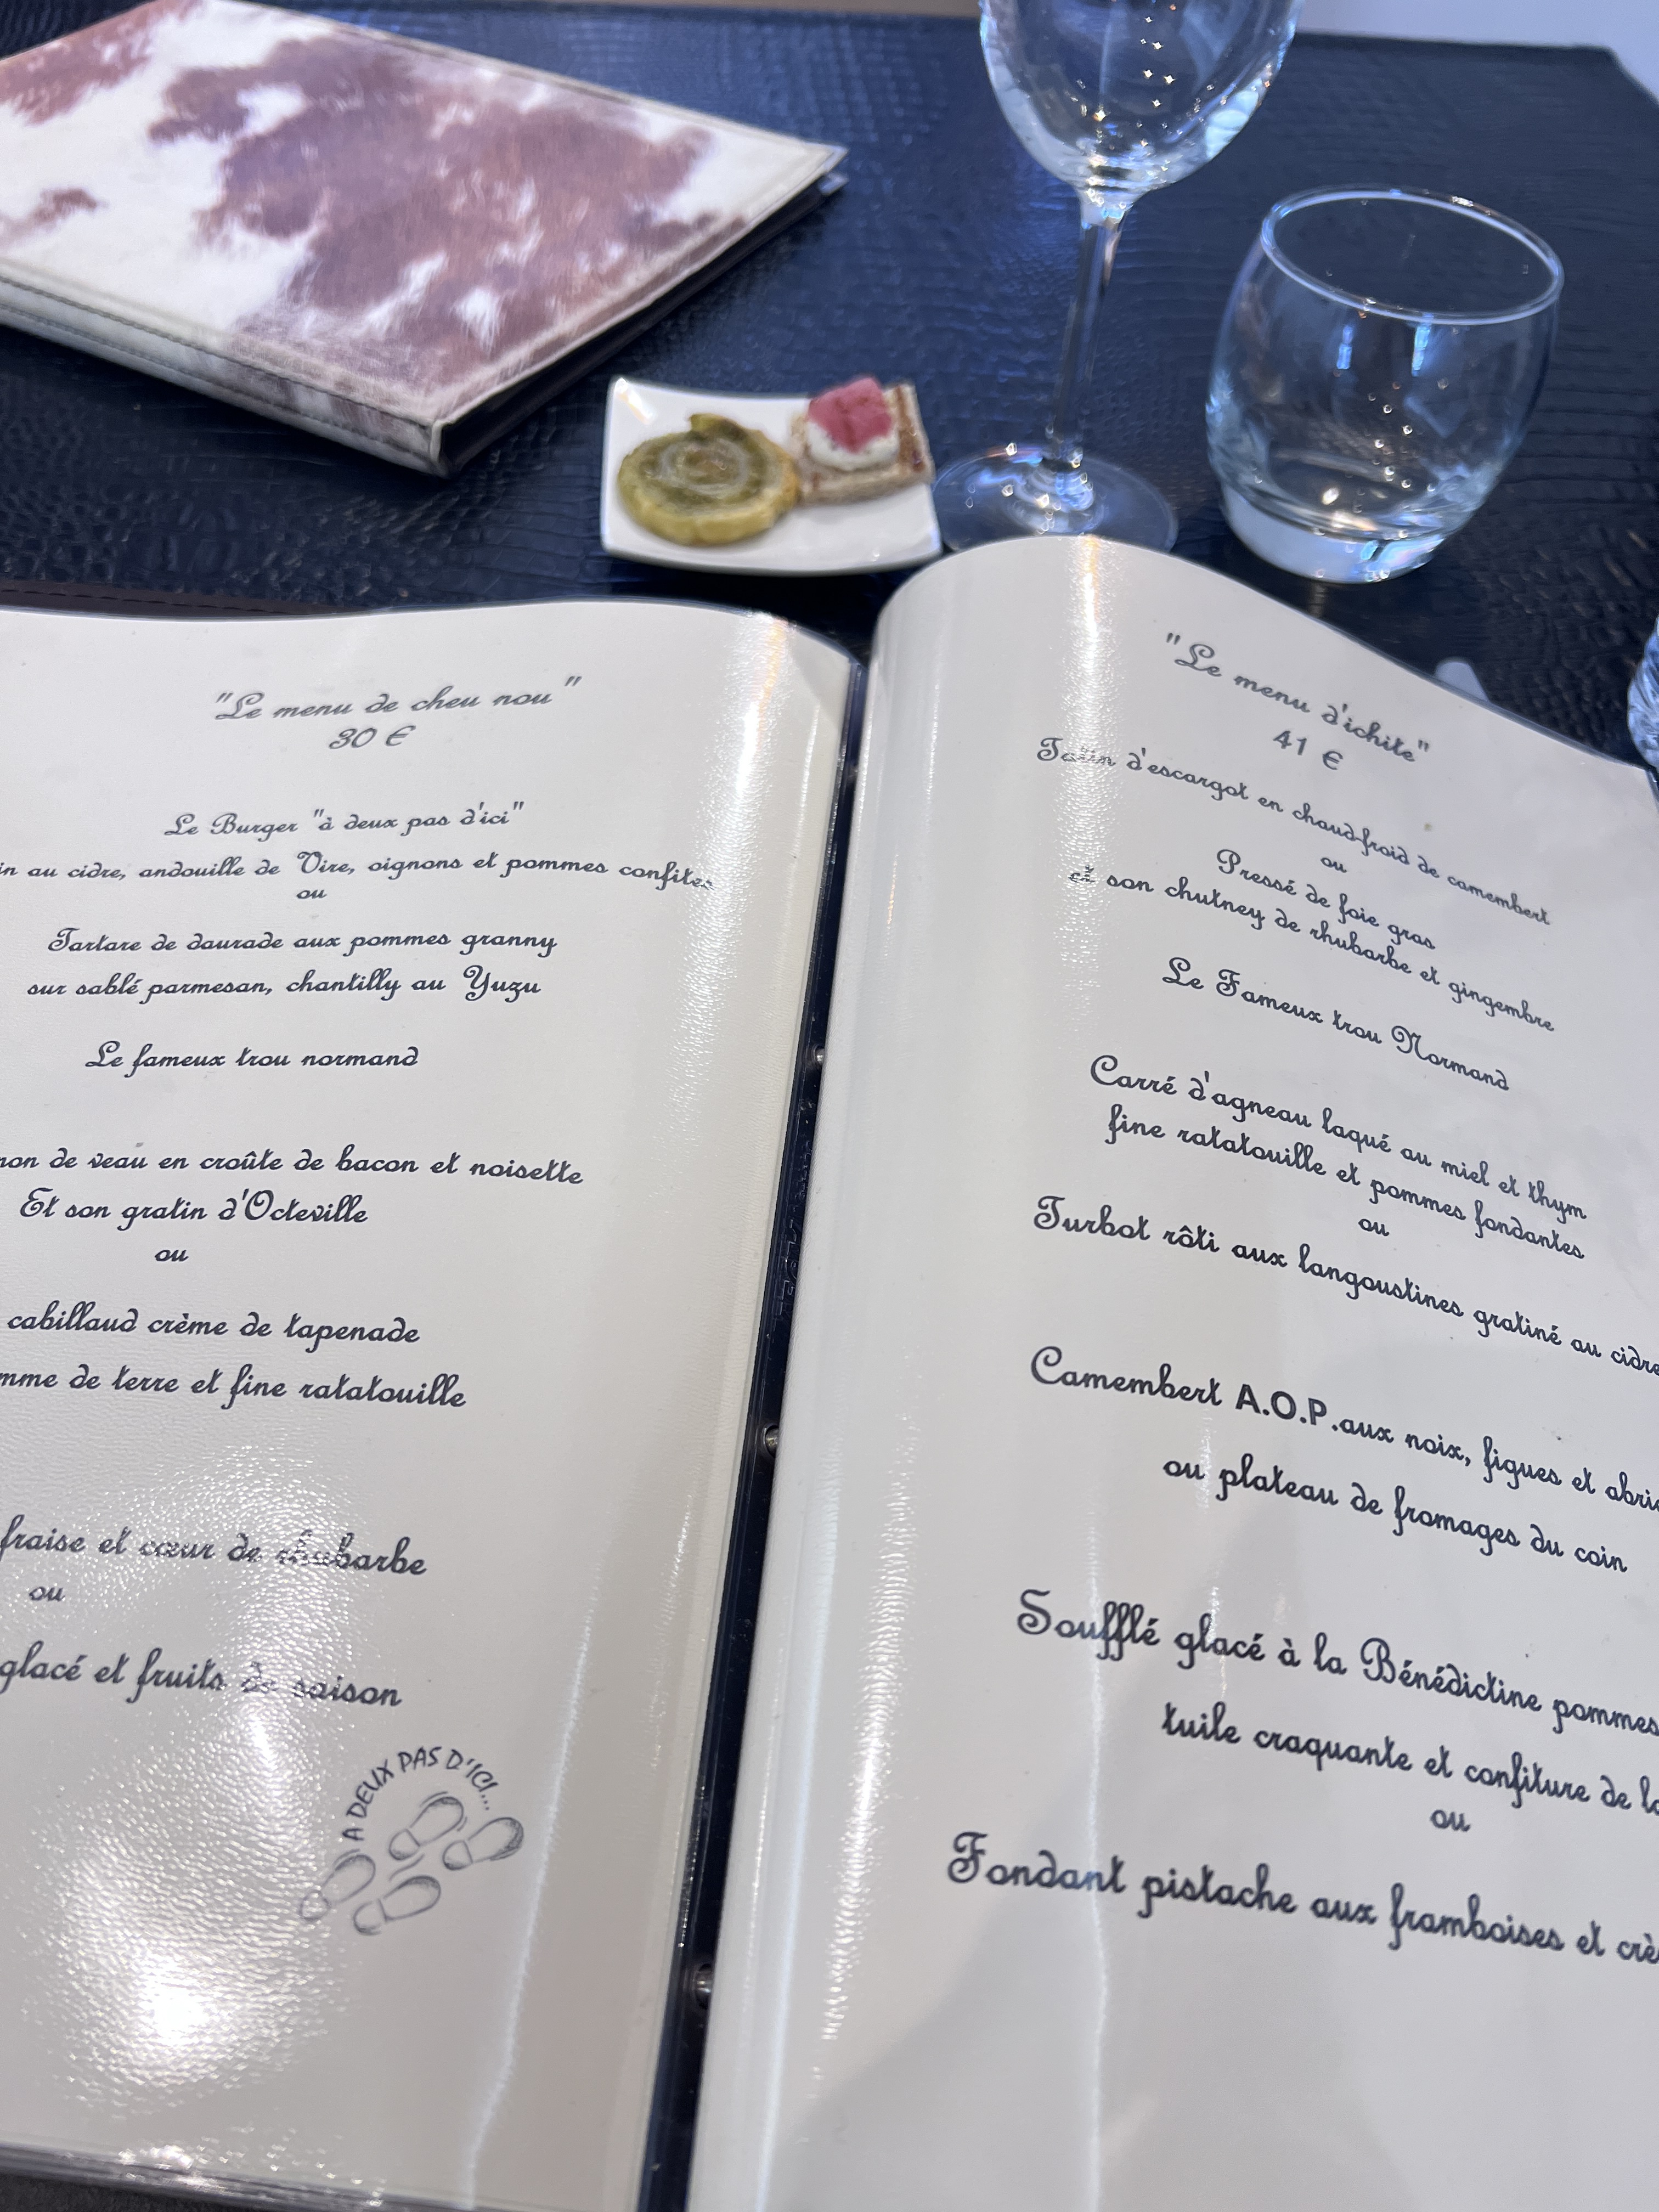 "Le menu de cheu nou"
30 €
Le Burger "à deux pas d'ici"
au cidre, andouille de Vire, oignons et pommes confites
ou
Tartare de daurade aux pommes granny
sur sablé parmesan, chantilly au Yuzu
Le fameux trou normand
de veau en croûte de bacon et noisette
Et son gratin d'Octeville
ou
cabillaud crème de tapenade
de terre et fine ratatouille
fraise et cœur de rhubarbe
ou
glacé et fruits de saison
A DEUX PAS D'ICI...
"Le menu d'ichite"
41 €
Tatin d'escargot en chaud-froid de camembert
ou
Pressé de foie gras
et son chutney de rhubarbe et gingembre
Le Fameux trou Normand
Carré d'agneau laqué au miel et thym
fine ratatouille et pommes fondantes
ou
Turbot rôti aux langoustines gratiné au cidre
Camembert A.O.P. aux noix, figues et
ou plateau de fromages du coin
Soufflé glacé à la Bénédictine pommes
tuile craquante et confiture de
ou
Fondant pistache aux framboises et